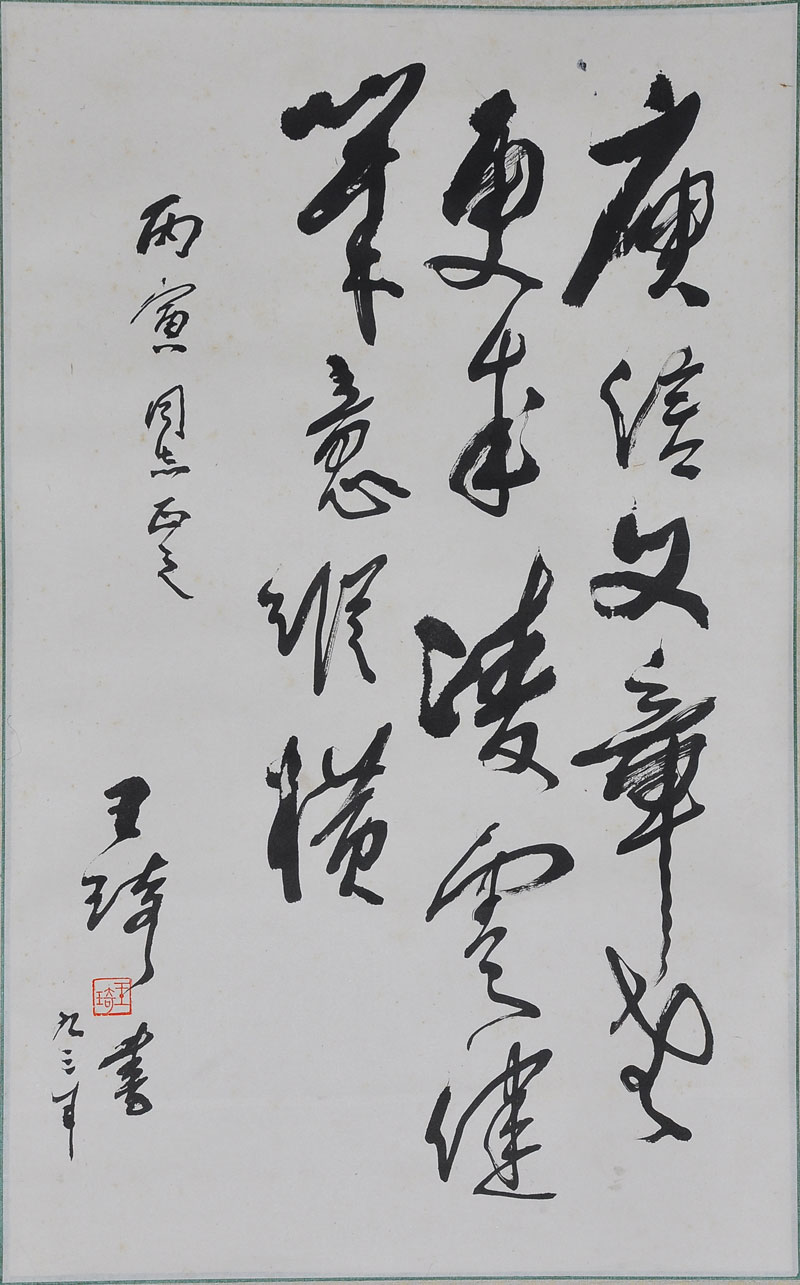 庾信文章老
更成凌雲健
筆意縱橫
丙寅同志正之
王琦書
九三年
王琦